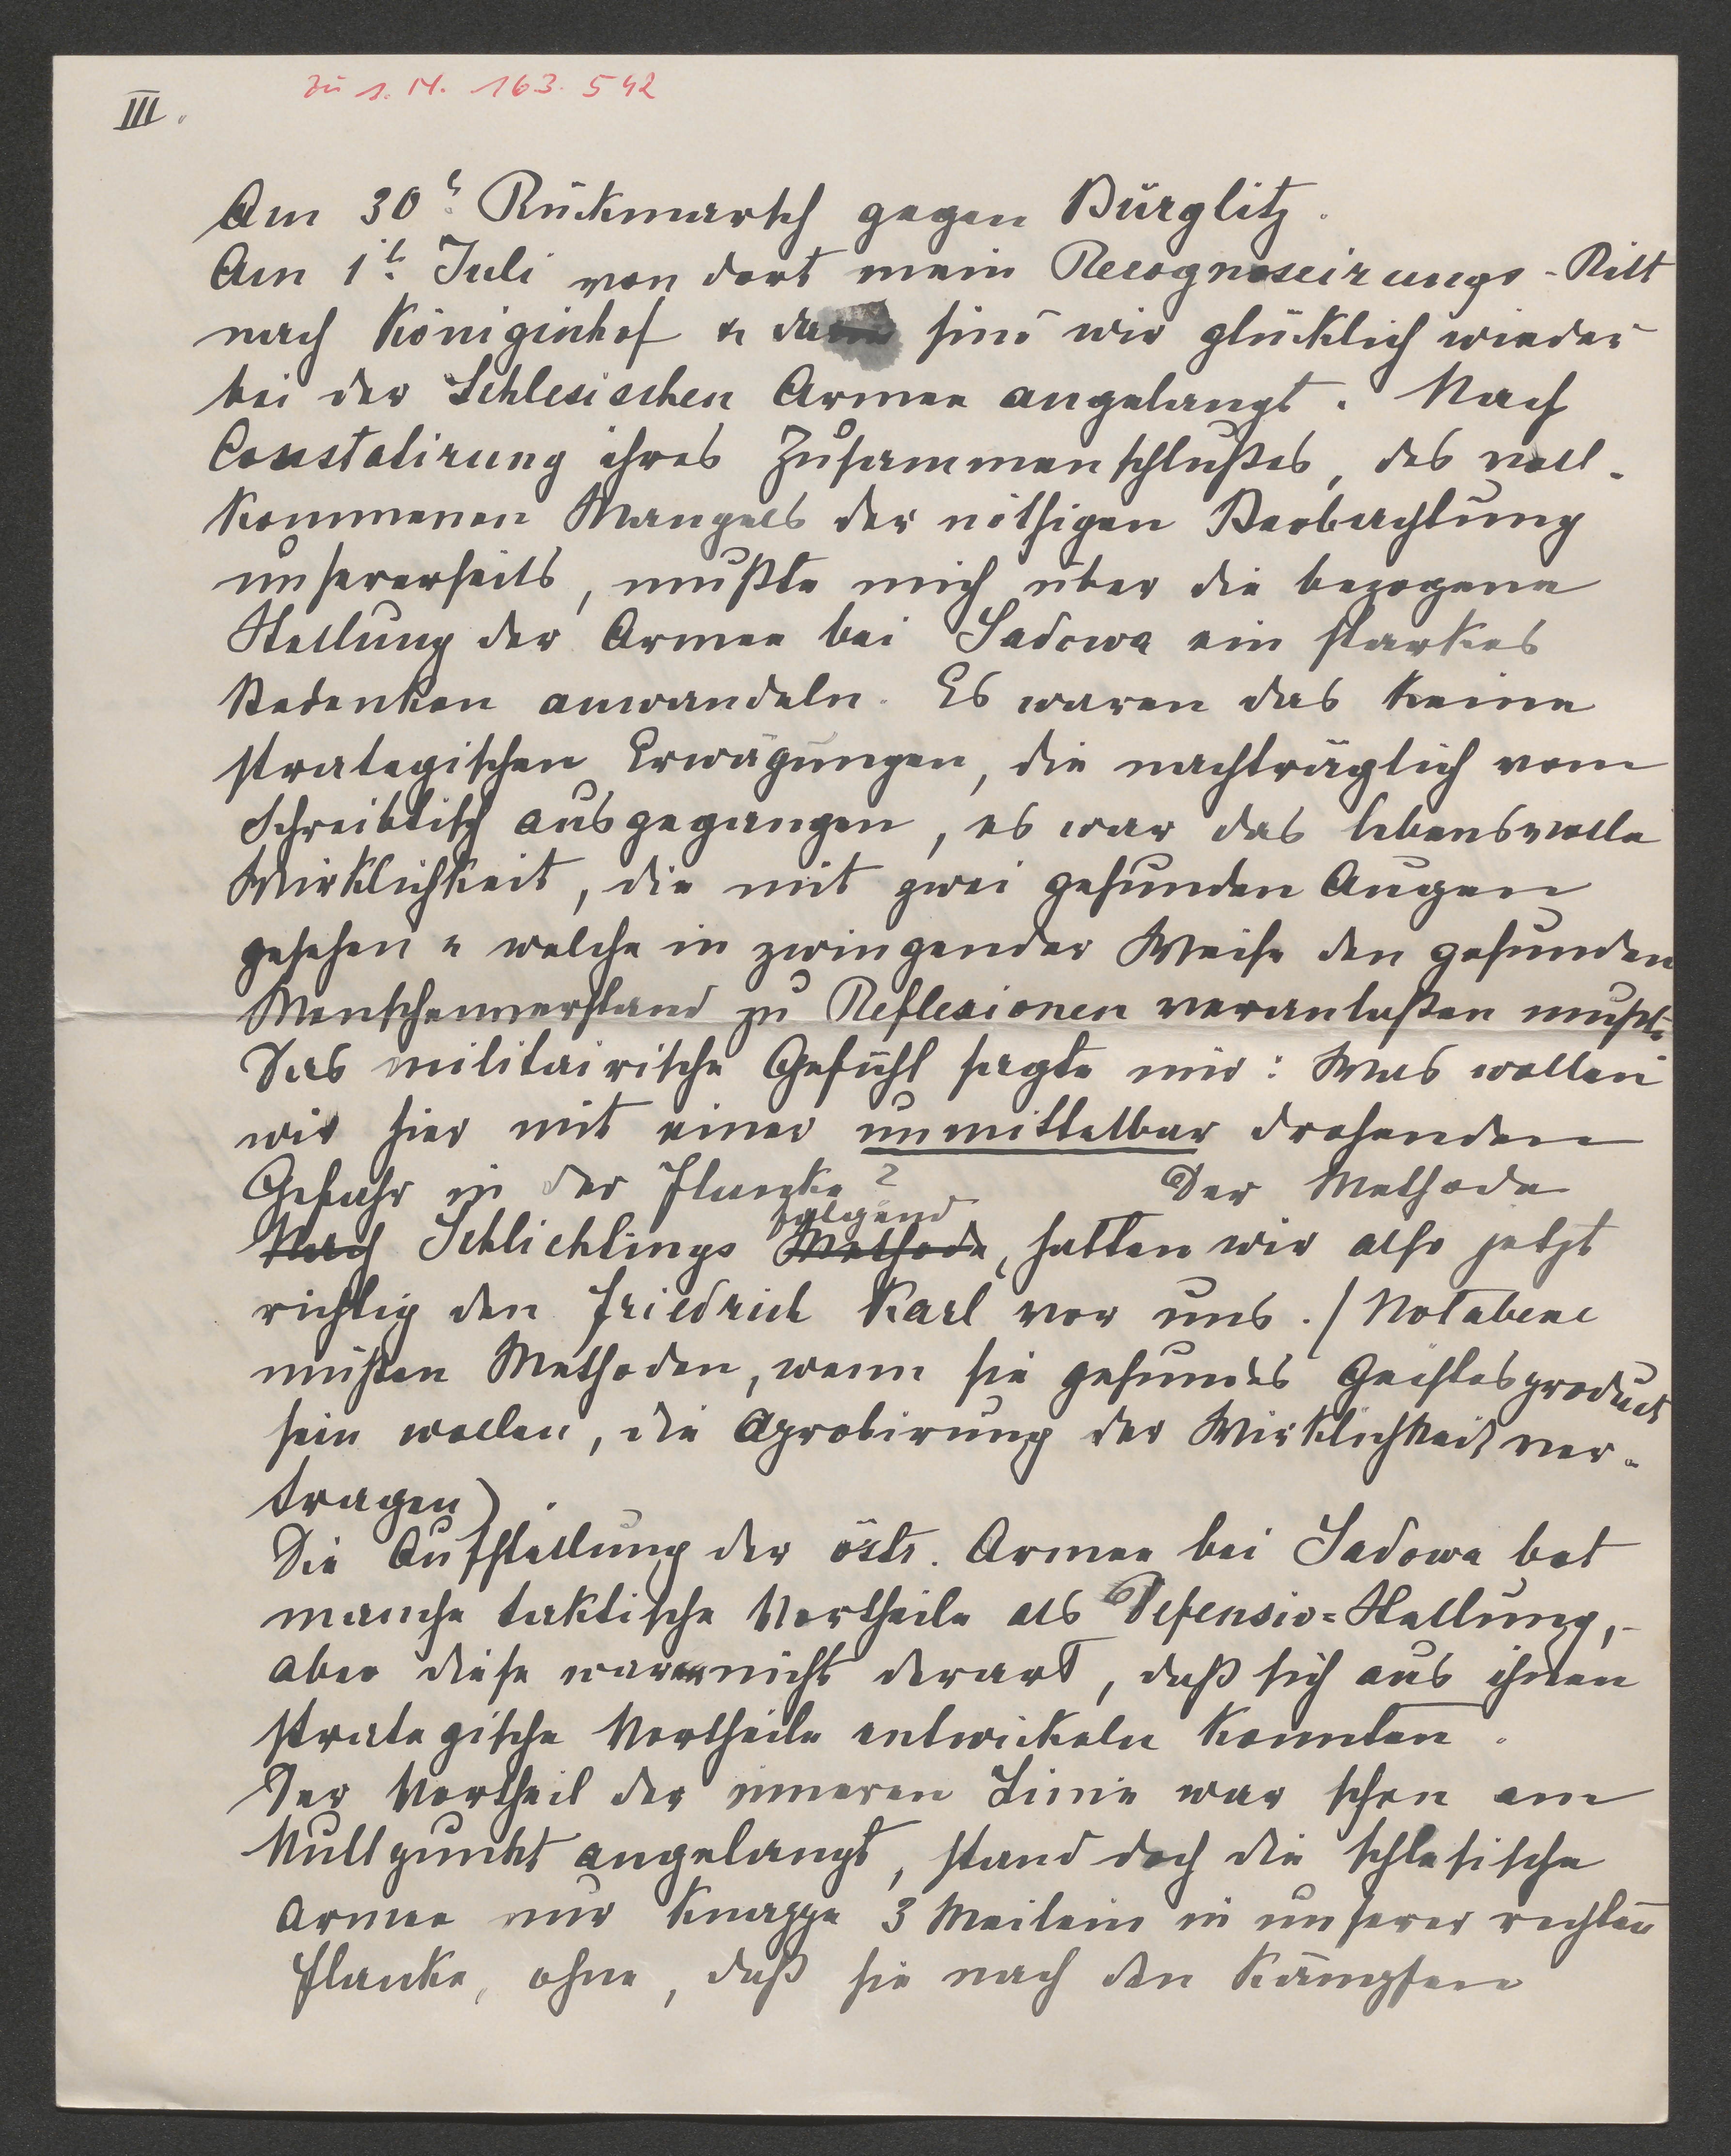 zu s. N. 163.542
III.
Am 30t. Rückmarsch gegen Bürglitz.
Am 1t. Juli von dort mein Recognoscirungs-Ritt
nach Königinhof & da sind wir glücklich wieder
bei der Schlesischen Armee angelangt. Nach
Constatirung ihres Zusammenschlußes, des voll-
kommenen Mangels der nöthigen Beobachtung
unsererseits, mußte mich über die bezogene
Stellung der Armee bei Sadowa ein starkes
Bedenken anwandeln. Es waren das keine
strategischen Erwägungen, die nachträglich vom
Schreibtisch ausgegangen, es war das lebensvolle
Wirklichkeit, die mit zwei gesunden Augen
gesehen & welche in zwingender Weise den gesunden
Menschenverstand zu Reflexionen veranlaßen mußte.
Das militairische Gefühl sagte mir: Was wollen
wir hier mit einer unmittelbar drohenden
Gefahr in der Flanke? Der Methode
Nach Schlichtings Methode folgend, hatten wir also jetzt
richtig den Friedrich Karl vor uns. / Notabene
müßen Methoden, wenn sie gesundes Geistesproduct
sein wollen, die Aprobirung der Wirklichkeit ver-
tragen).
Die Aufstellung der östr. Armee bei Sadowa bot
manche taktische Vortheile als Defensiv=Stellung,-
aber diese waren nicht derart, daß sich aus ihnen
strategische Vortheile entwickeln konnten.
Der Vortheil der inneren Linie war schon am
Nullpunkt angelangt, stand doch die schlesische
Armee nur knappe 3 Meilen in unserer rechten
Flanke, ohne, daß sie nach den Kämpfen